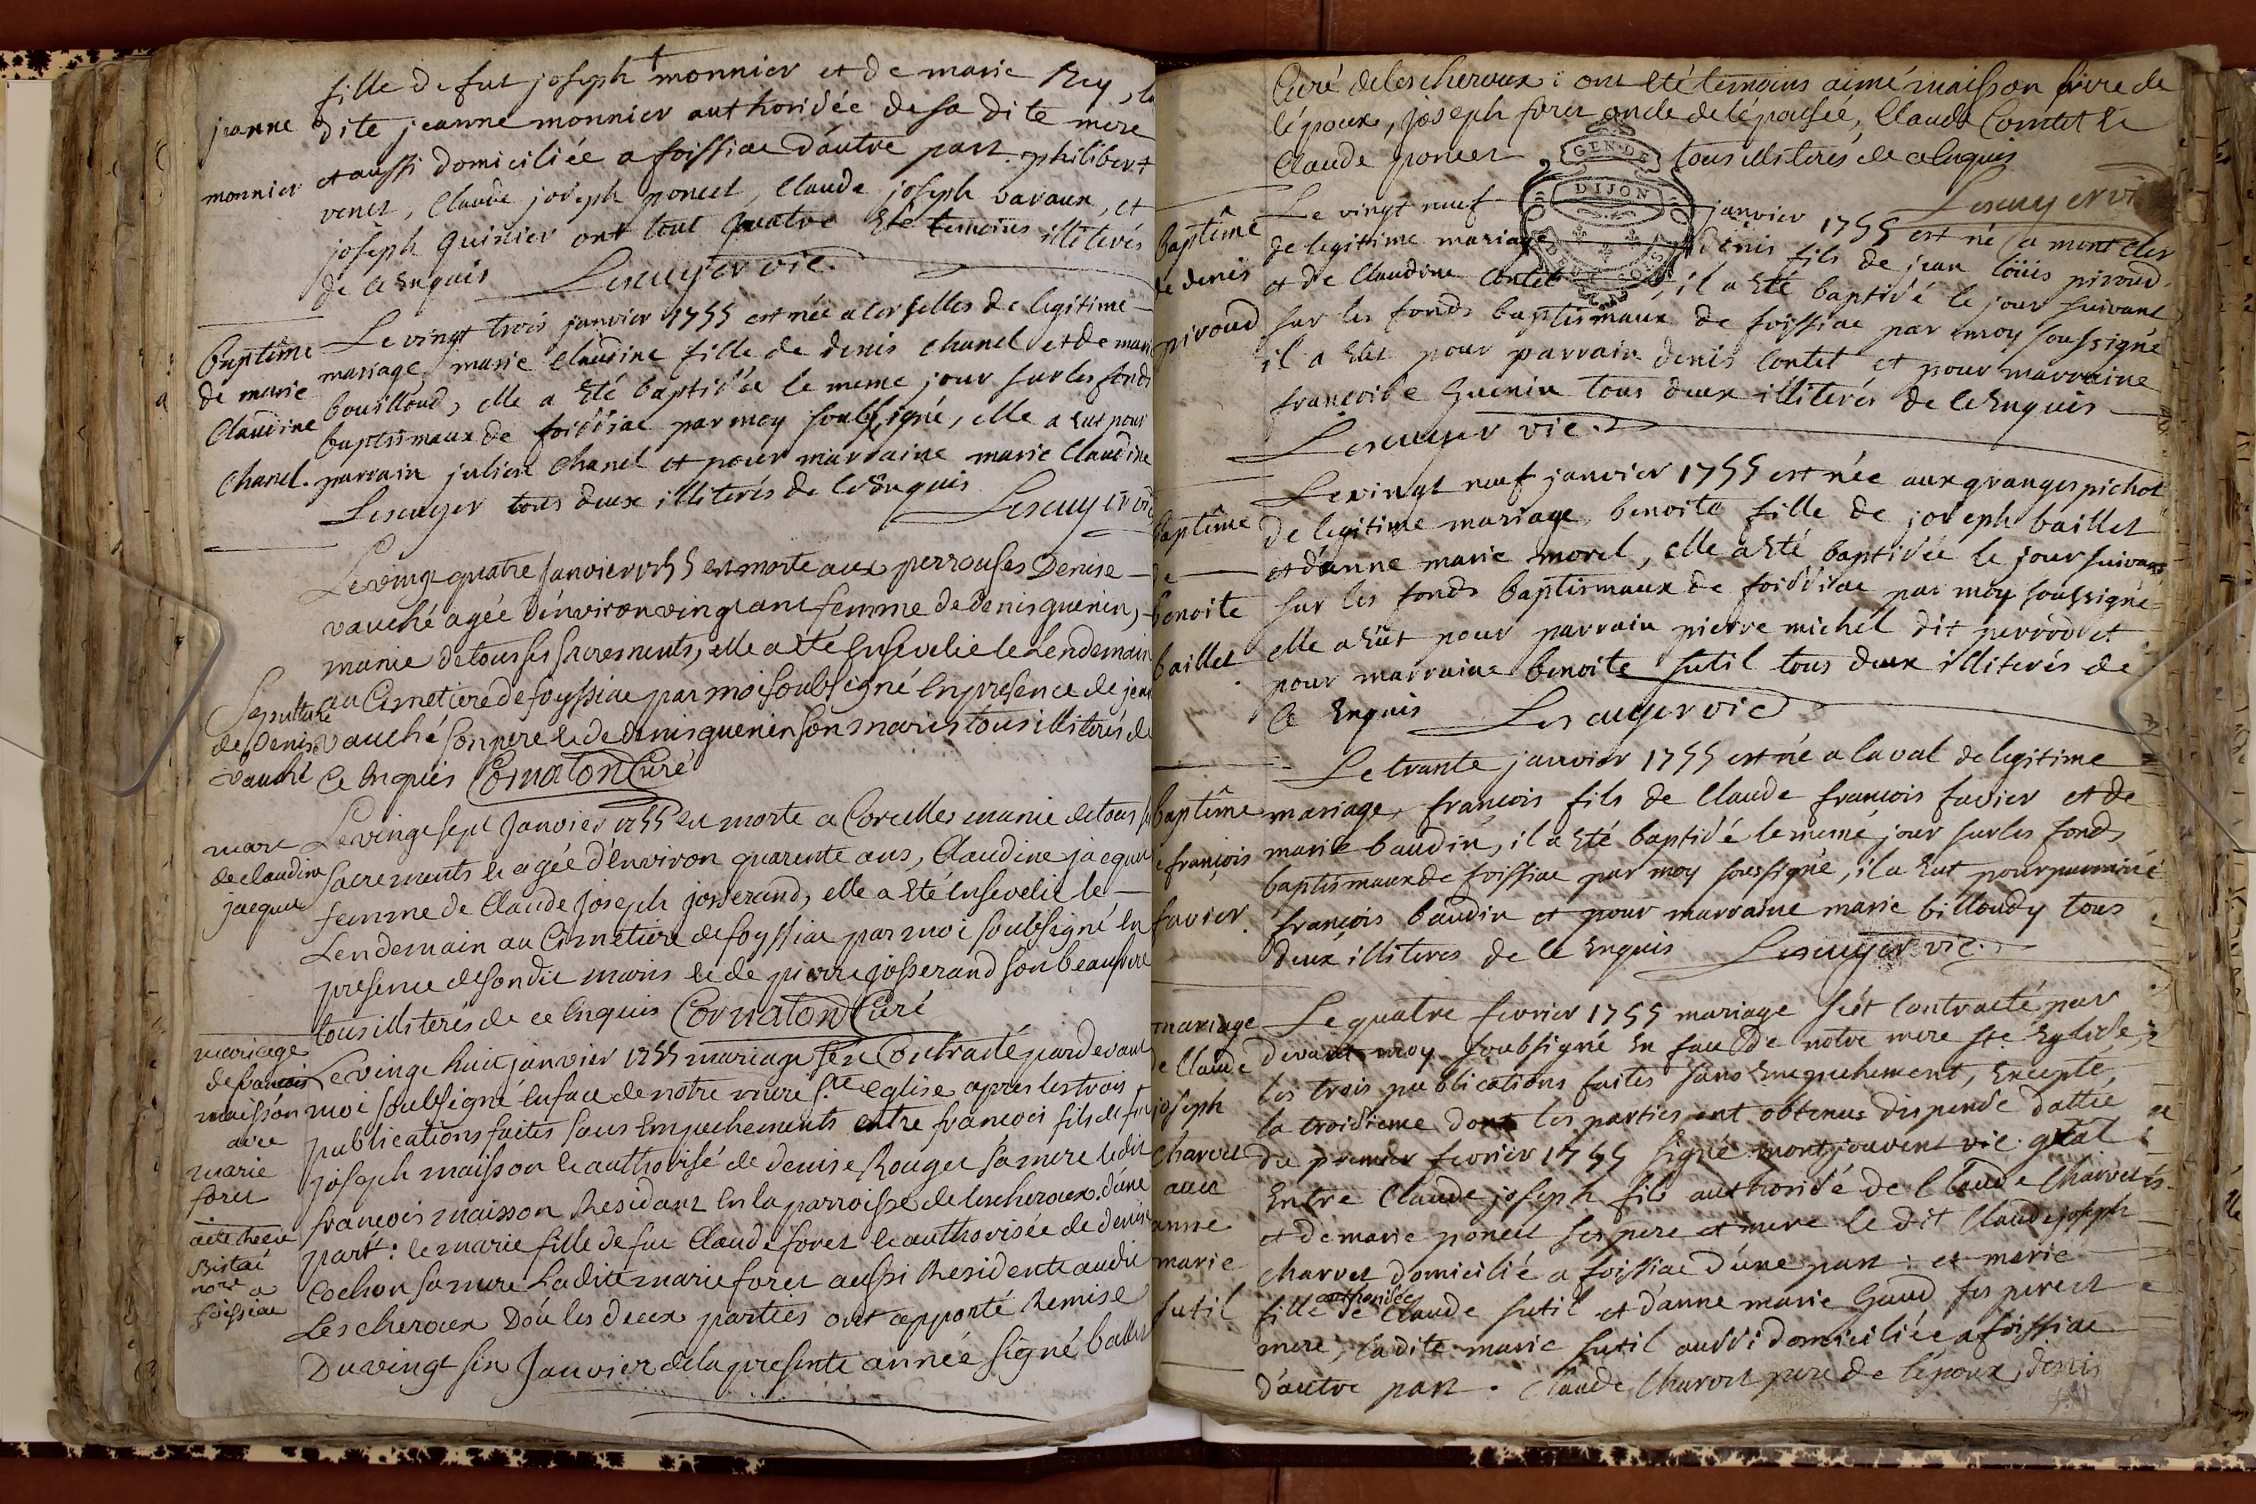 fille de fut joseph monnier et de marie Rey, la
jeanne
dite jeanne monnier authorisée de sa dite mere
et aussi domiciliée a foissiac d'autre part. philibert
monnier
venet, Claude joseph poncet, Claude joseph varaux, et
joseph Guisier ont tout quatre Eté temoins illiterés
de ce Enquis Lescuyer vic.
Baptême
de marie
Claudine
Chanel.
Le vingt trois janvier 1755 est née a Corselles de legitime
mariage, marie Claudine fille de denis chanel et de marie
bouilloud, elle a Eté baptisée le meme jour sur les fonds
baptismaux de foissiac par moy soubsigné, elle a Eut pour
parrain julien Chanel et pour marraine marie Claudine
Lescuyer tous deux illiterés de ce Enquis Lescuyer vic
Sepulture
de Denise
vauché
Le vingt quatre Janvier 1755 est morte aux perrouses Denise
vauché agée d'environ vingt ans femme de Denis guenin,
munie de tous ses sacrements, elle a eté Ensevelie le Lendemain
au Cimetiere de foyssiac par moi soubsigné En presence de jean
vauché son pere & de denis guenin son maris tous illiterés de
ce Enquis Cornaton Curé
mort
de claudine
jacquet
Le vingt sept Janvier 1755 est morte a Corcelles munie de tous ses
sacrements & agée d'Environ quarente ans, Claudine jacquet
femme de Claude Joseph josserand, elle a Eté Ensevelie le
Lendemain au Cimetiere de foyssiac par moi soubsigné En
presence de son dit maris & de pierre josserand son beaupere
tous illiterés de ce Enquis Cornaton Curé
mariage
de francois
maisson
avec
marie
foret
acte chez
notre a
foissiac
Le vingt huit janvier 1755 mariage fut Contracté pardevant
moi soubsigné En face de notre mere Ste Eglise apres les trois
publications faites sans Empechements entre francois fils de fut
joseph maisson & authorisé de denise Rouget sa mere ledit
francois maisson Residant En la parroisse de lescheroux, d'une
part : & marie fille de fut Claude foret & authorisée de denise
Cochon sa mere Ladite marie foret aussi Residente audit
Lescheroux D'ou les deux parties ont apporté Remise
Du vingt six Janvier de la presente année signé ballet
Curé de lescheroux : ont Eté temoins aimé maisson frere de
l'époux, joseph foret oncle de l'épousée, Claude Contet &
Claude poncet tous illiterés de ce Enquis
Lescuyer vi
GEN. DE
DIJON
Baptême
de denis
piroud
Le vingt neuf janvier 1755 est né a mont cler
de legitime mariage denis fils de jean loüis piroud
et de Claudine Contet, il a Eté baptisé le jour suivant
sur les fonds baptismaux de foissiac par moy soussigné
il a Eut pour parrain denis Contet et pour marraine
francoise Guenin tous deux illiterés de ce Enquis
Lescuyer vic.
Baptême
de
benoite
baillet
Le vingt neuf janvier 1755 est née aux granges pichot
de legitime mariage, benoite fille de joseph baillet
et d'anne marie morel, elle a Eté baptisée le jour suivant
sur les fonds baptismaux de foissiac par moy soussigné
elle a Eut pour parrain pierre michel dit perrodet
pour marraine benoite sutil tous deux illiterés de
ce Enquis Lescuyer vic
baptême
de françois
favier.
Le trante janvier 1755 est né a laval de legitime
mariage, françois fils de Claude françois favier et de
marie baudin, il a Eté baptisé le meme jour sur les fonds
baptismaux de foissiac par moy soussigné, il a Eut pour parrain
françois baudin et pour marraine marie billoudy tous
deux illiteres de ce Enquis Lescuyer vic.
mariage
de Claude
joseph
Charvet
avec
anne
marie
sutil
Le quatre fevrier 1755 mariage s'est Contracté par
devant moy soubsigné En face de notre mere Ste Eglise,
les trois publications faites sans Empechement, Excepté
la troisieme dont les parties ont obtenue dispense dattée
du premier fevrier 1755 signé montjouvent vic. gral
Entre Claude joseph fils authorisé de Claude Charvet
et de marie poncet ses pere et mere le dit Claude joseph
charvet domicilié a foissiac d'une part : et marie
fille authorisée de Claude sutil et d'anne marie Gaud ses pere et
mere, ladite marie sutil aussi domiciliée a foissiac
d'autre part. Claude Charvet pere de l'époux, denis